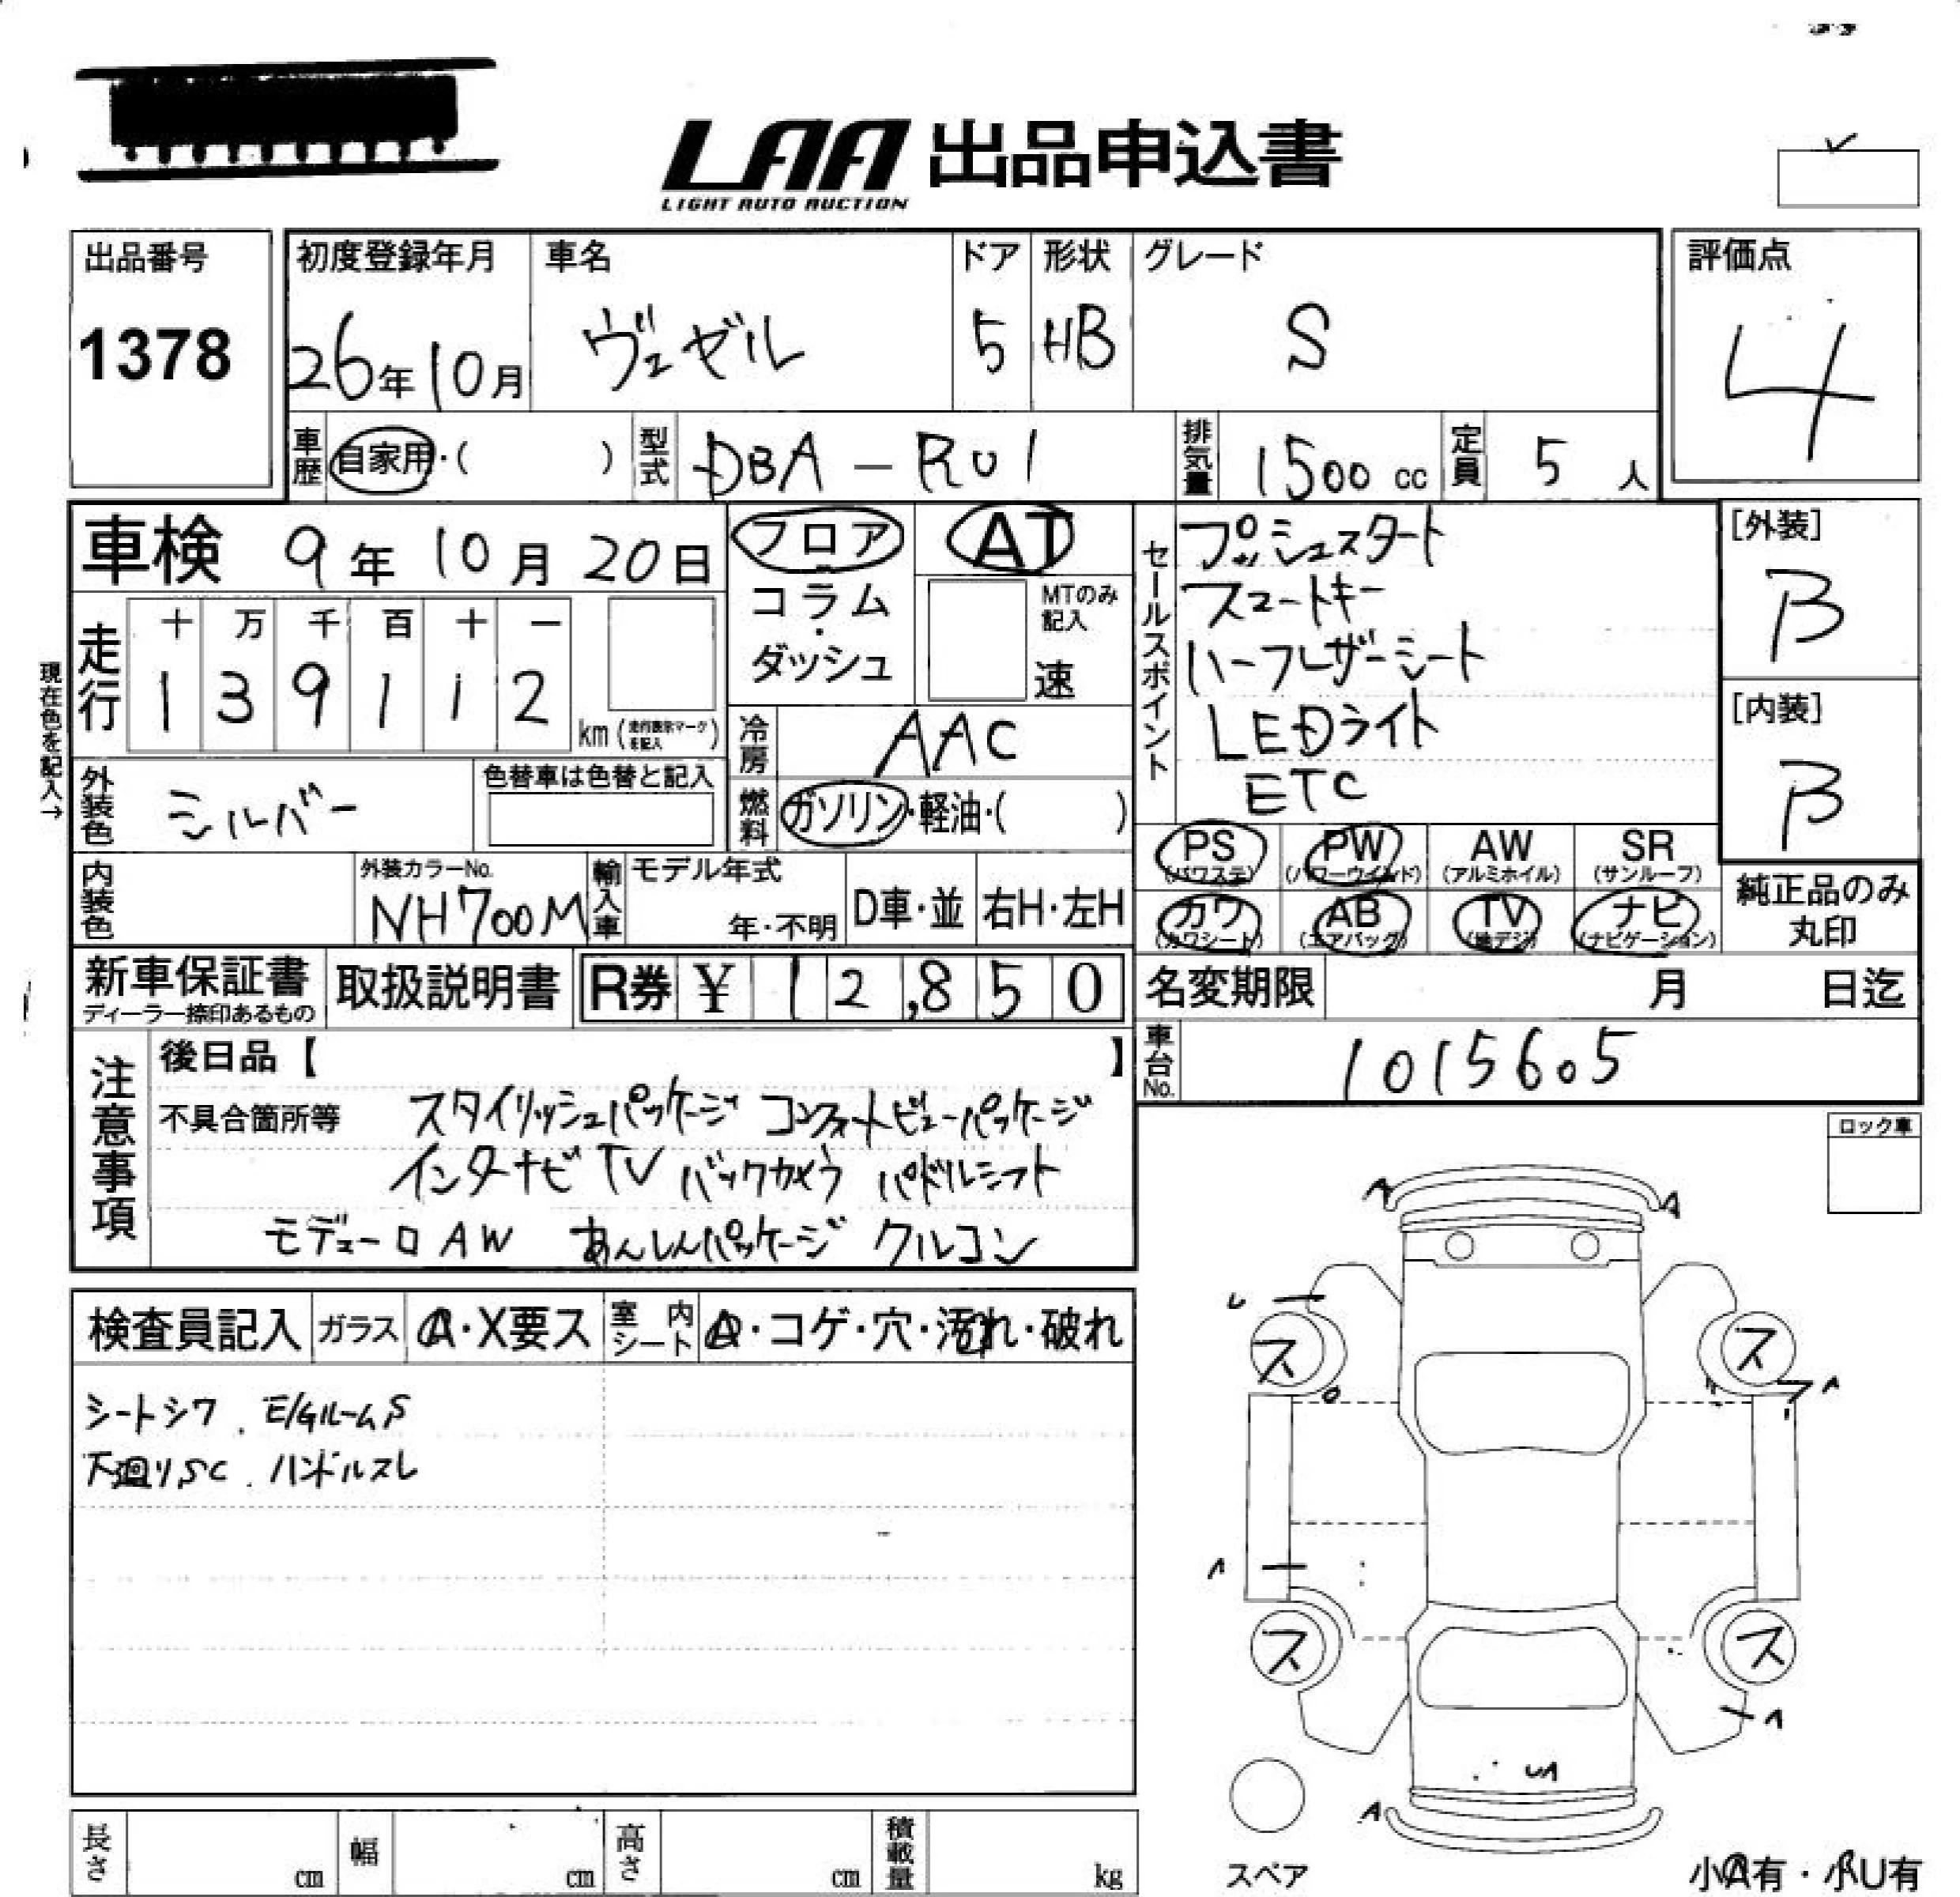 LAA 出品申込書
LIGHT AUTO AUCTION
出品番号
1378
初度登録年月
26年10月
車名
ヴェゼル
ドア
5
形状
HB
グレード
S
評価点
4
車歴
自家用・( )
型式
DBA-RU1
排気量
1500cc
定員
5人
車検 9年10月20日
現在色を記入→
走行
十 万 千 百 十 一
1 3 9 1 1 2
km(走行表示マークを記入)
フロア
コラム
・
ダッシュ
AT
MTのみ
記入
速
冷房
AAC
燃料
ガソリン・軽油・( )
外装色
シルバー
色替車は色替と記入
内装色
外装カラーNo.
NH700M
輸入車
モデル年式
年・不明
D車・並
右H・左H
セールスポイント
プッシュスタート
スマートキー
ハーフレザーシート
LEDライト
ETC
[外装]
B
[内装]
B
PS
(パワステ)
PW
(パワーウインド)
AW
(アルミホイル)
SR
(サンルーフ)
カワ
(カワシート)
AB
(エアバッグ)
TV
(地デジ)
ナビ
(ナビゲーション)
純正品のみ
丸印
新車保証書
ディーラー捺印あるもの
取扱説明書
R券 ¥ 12,850
名変期限 月 日迄
車台No.
1015605
注意事項
後日品【 】
不具合箇所等 スタイリッシュパッケージ コンフォートビューパッケージ
インターナビ TV バックカメラ パドルシフト
モデューロAW あんしんパッケージ クルコン
ロック車
検査員記入
ガラス
A・X要ス
室内シート
A・コゲ・穴・汚れ・破れ
シートシワ、E/GルームS
下廻りSC、ハンドルスレ
A A
ス ス
ス ス
A
スペア
小A有・小U有
長さ cm
幅 cm
高さ cm
積載量 kg